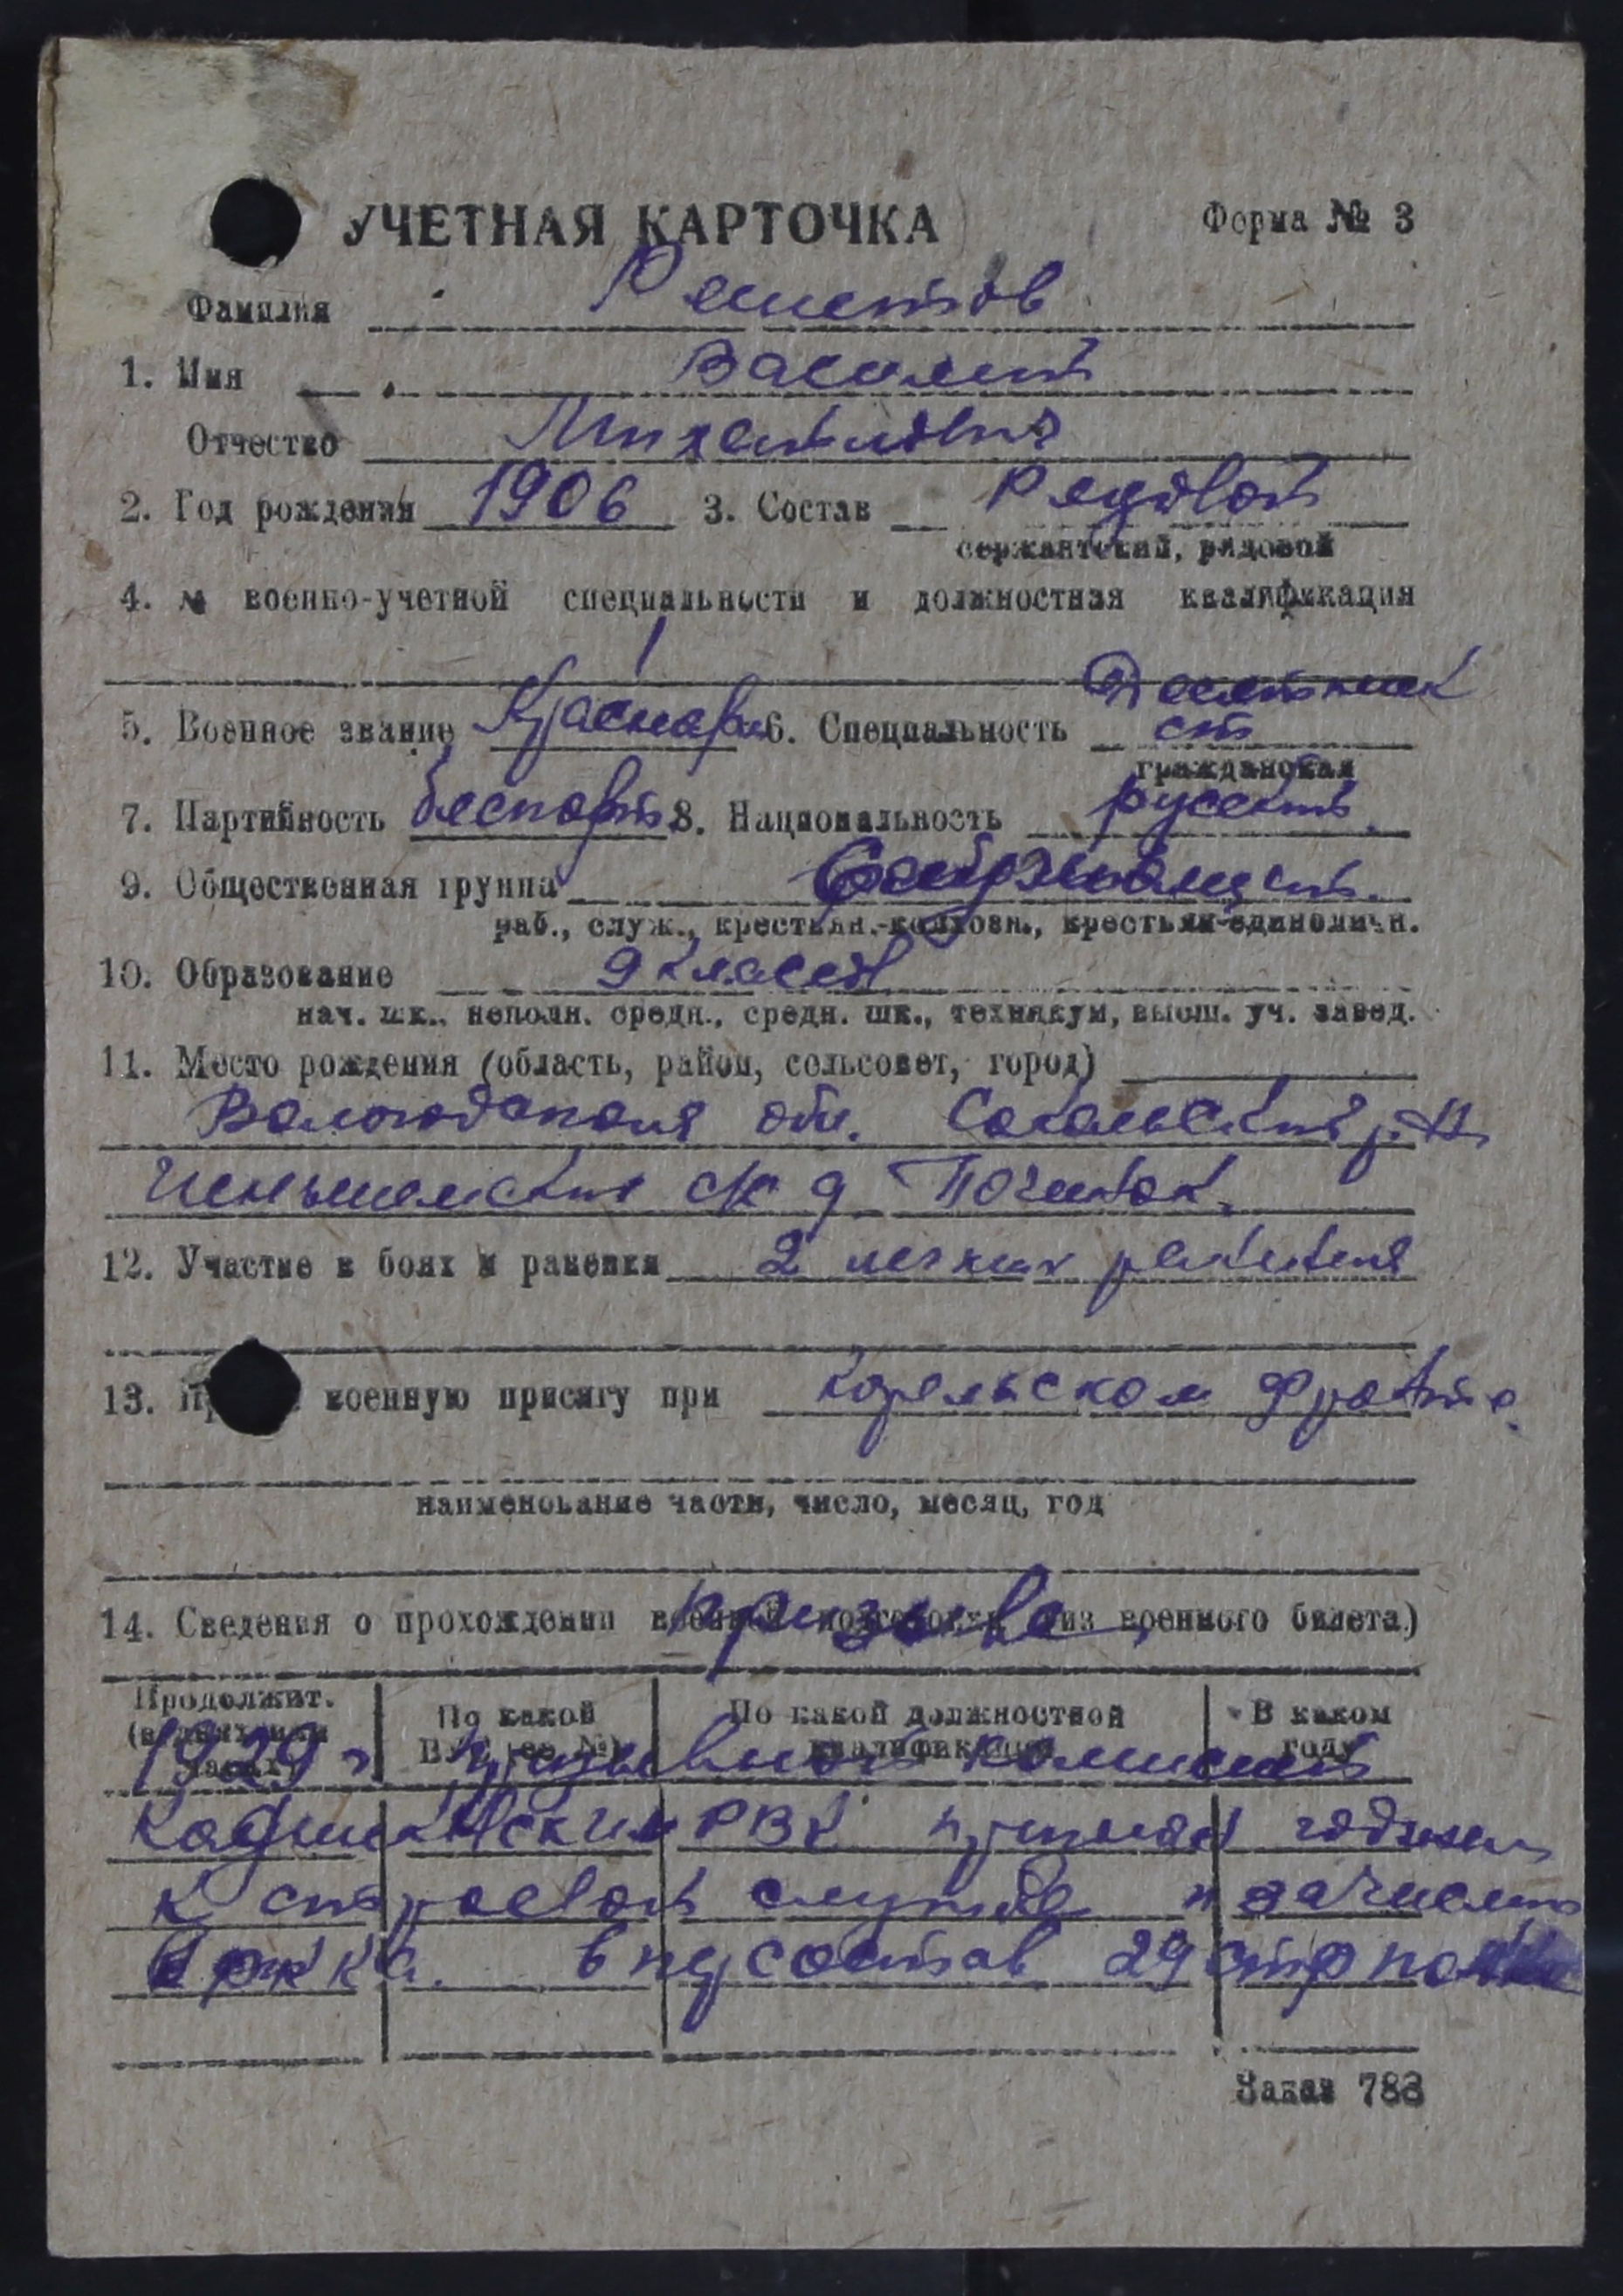 УЧЕТНАЯ КАРТОЧКА Форма № 3
Фамилия Решетов
1. Имя Василий
Отчество Михайлович
2. Год рождения 1906 3. Состав Рядовой
сержантский, рядовой
4. № военно-учетной специальности и должностная квалификация
1
5. Военное звание Краснарм 6. Специальность Десятник
ст
гражданская
7. Партийность беспарт 8. Национальность русский
9. Общественная группа
раб., служ., крестьян.-колхозн., крестьян-единоличн.
10. Образование 9 классов
нач. шк., неполн. средн., средн. шк., техникум, высш. уч. завед.
11. Место рождения (область, район, сельсовет, город)
Вологодская обл. Сокольский р-н
с/с д Починок
12. Участие в боях и ранения 2 легких ранения
13. военную присягу при Корельском фронте
наименование части, число, месяц, год
14. Сведения о прохождении военной подготовки (из военного билета)
призыве
Продолжит. По какой По какой должностной В каком
квалификации году
1929 г. призывной комиссией
Кадниковским РВК признан годным
к строевой службе и зачислен
в РККА. в п/состав 29 стр полка
Заказ 788